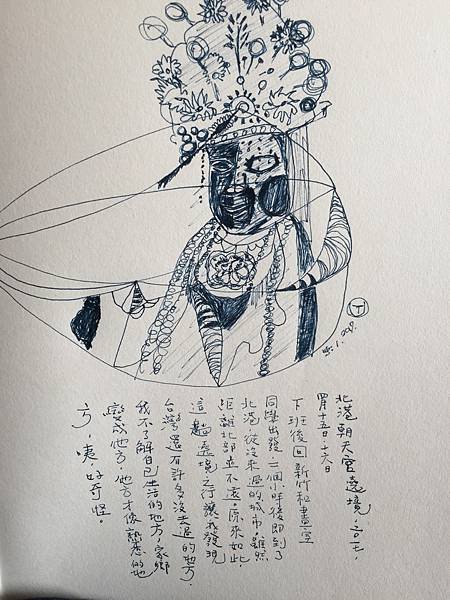 北港朝天宮遶境,二〇一七,
四月十五日,十六日
下班後回新竹和畫室
同學出發,二個小時後即到了
北港,從沒來過的城市,雖然
距離北部並不遠,原來如此,
這趟遶境之行讓我發現
台灣還有許多沒去過的地方,
我不了解自己生活的地方,家鄉
變成他方,他方才像熟悉的地
方,咦,好奇怪。
T